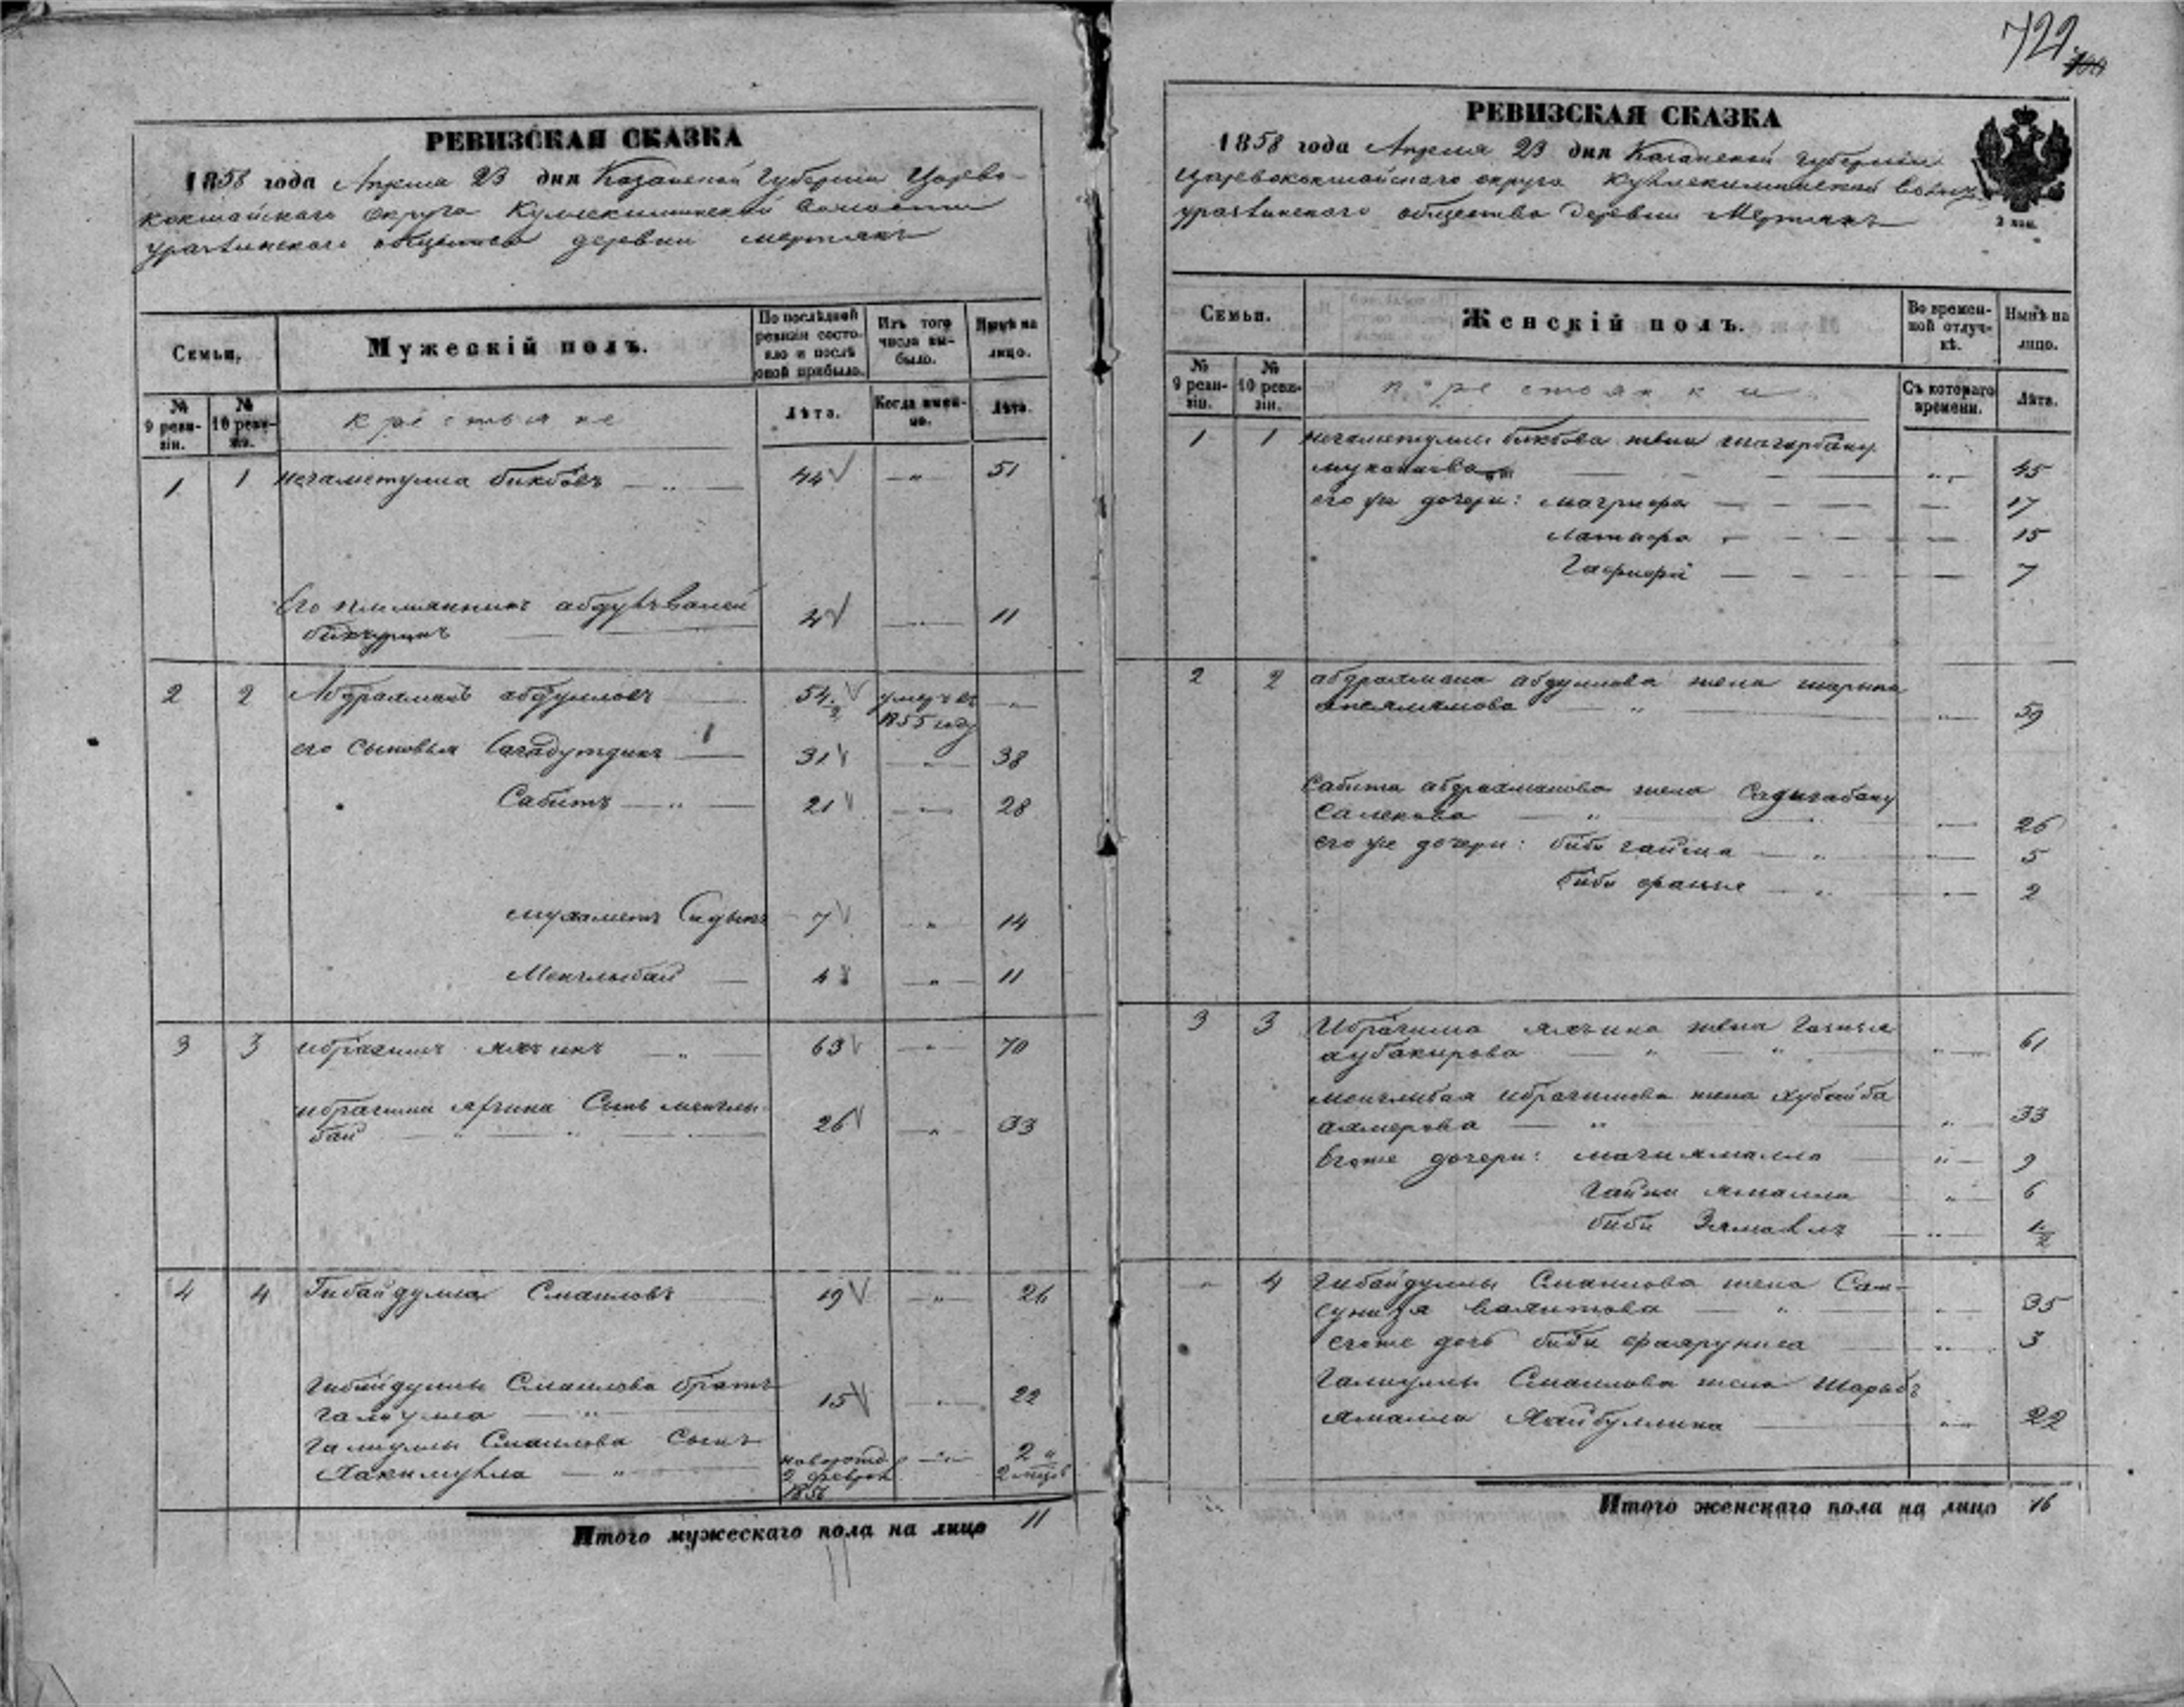 722
РЕВИЗСКАЯ СКАЗКА
1858 года Апреля 23 дня Казанской Губернии Царево-
кокшайскаго округа Кулле-Киминской волости
деревни мертякъ
Семьи.
Мужескій полъ.
По послѣдней ревизіи состояло и послѣ оной прибыло.
Изъ того числа выбыло.
Нынѣ на лицо.
№ 9 ревизіи.
№ 10 ревизіи.
крестьяне
Лѣта.
Когда именно.
Лѣта.
1 1 негаметулла бикбовъ — „ — 44 — „ — 51
Его племянникъ
4 — „ — 11
2 2 Абдрахманъ абдулловъ — 54 умеръ въ — „ —
1855 году
его сыновья Сагадутдинъ — 31 — „ — 38
Сабитъ — „ — 21 — „ — 28
мухаметъ Садыкъ 7 — „ — 14
Менглыбай — 4 — „ — 11
3 3 ибрагимъ — „ 63 — „ — 70
ибрагима Сынъ менглы-
бай — „ — „ — 26 — „ — 33
4 4 Гибайдулла Смаиловъ — 19 — „ — 26
Гибайдуллы Смаилова братъ
галиулла — „ — 15 — „ — 22
галиуллы Смаилова Сынъ
Хакимулла — „ — новорожд — „ — 2 „
2 февраля 2 мѣсяц
1856
Итого мужескаго пола на лицо 11
РЕВИЗСКАЯ СКАЗКА
1858 года Апреля 23 дня Казанской Губернии
Царевококшайскаго округа Кулле-Киминской
общества деревни Мертякъ
2 коп.
Семьи.
Женскій полъ.
Во временной отлучкѣ.
Нынѣ на лицо.
№ 9 ревизіи.
№ 10 ревизіи.
крестьянки
Съ котораго времени.
Лѣта.
1 1 негаметуллы бикбова жена шагарбану
— „ — 45
его же дочери: магрифа — — 17
латифа — — 15
Гафифа — — 7
2 2 абдрахмана абдуллова жена
— „ — „ — 59
Сабита абдрахманова жена Садигабану
Салехова — „ — — 26
его же дочери: биби гайша — „ — 5
биби — „ — 2
3 3 Ибрагима жена
аубакирова — „ — „ — 61
менглибая ибрагимова жена хубайба
амерова — „ — „ — 33
Егоже дочери: магиямалла — „ — 9
гайни ямалла — „ — 6
биби — „ — 1/2
„ 4 Гибайдуллы Смаилова жена Сам-
— „ — „ — 35
егоже дочь биби — „ — 3
Галиуллы Смаилова жена Шарыбъ
ямалла Хайбуллина — „ — 22
Итого женскаго пола на лицо 16